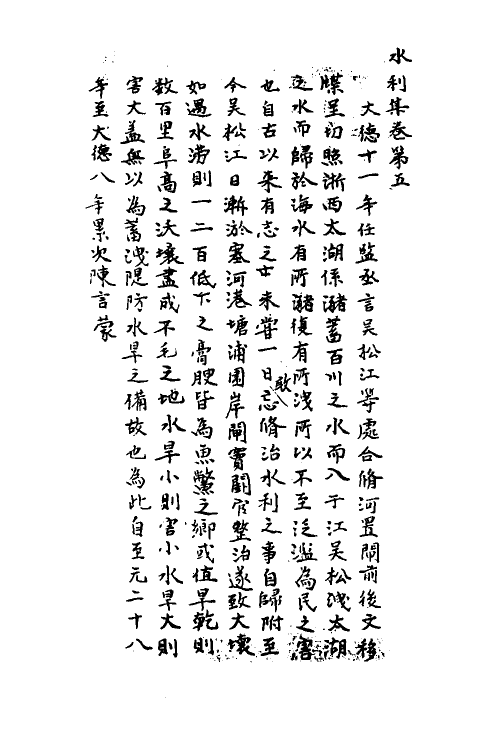 水利集卷第五
大德十一年任監丞言吴松江等處合脩河置閘前後文移
牒呈切照浙西太湖係瀦蓄百川之水而入于江吴松洩太湖
之水而歸於海水有所瀦復有所洩所以不至泛濫為民之害
也自古以来有志之士未嘗一日敢忘脩治水利之事自歸附至
今吴松江日漸於塞河港塘浦圍岸閘竇闕官整治遂致大壞
如遇水澇則一二百低下之膏腴皆為魚鱉之鄉或值旱乾則
数百里阜高之沃壤盡成不毛之地水旱小則害小水旱大則
害大盖無以為蓄洩隄防水旱之備故也為此自至元二十八
年至大德八年累次陳言蒙